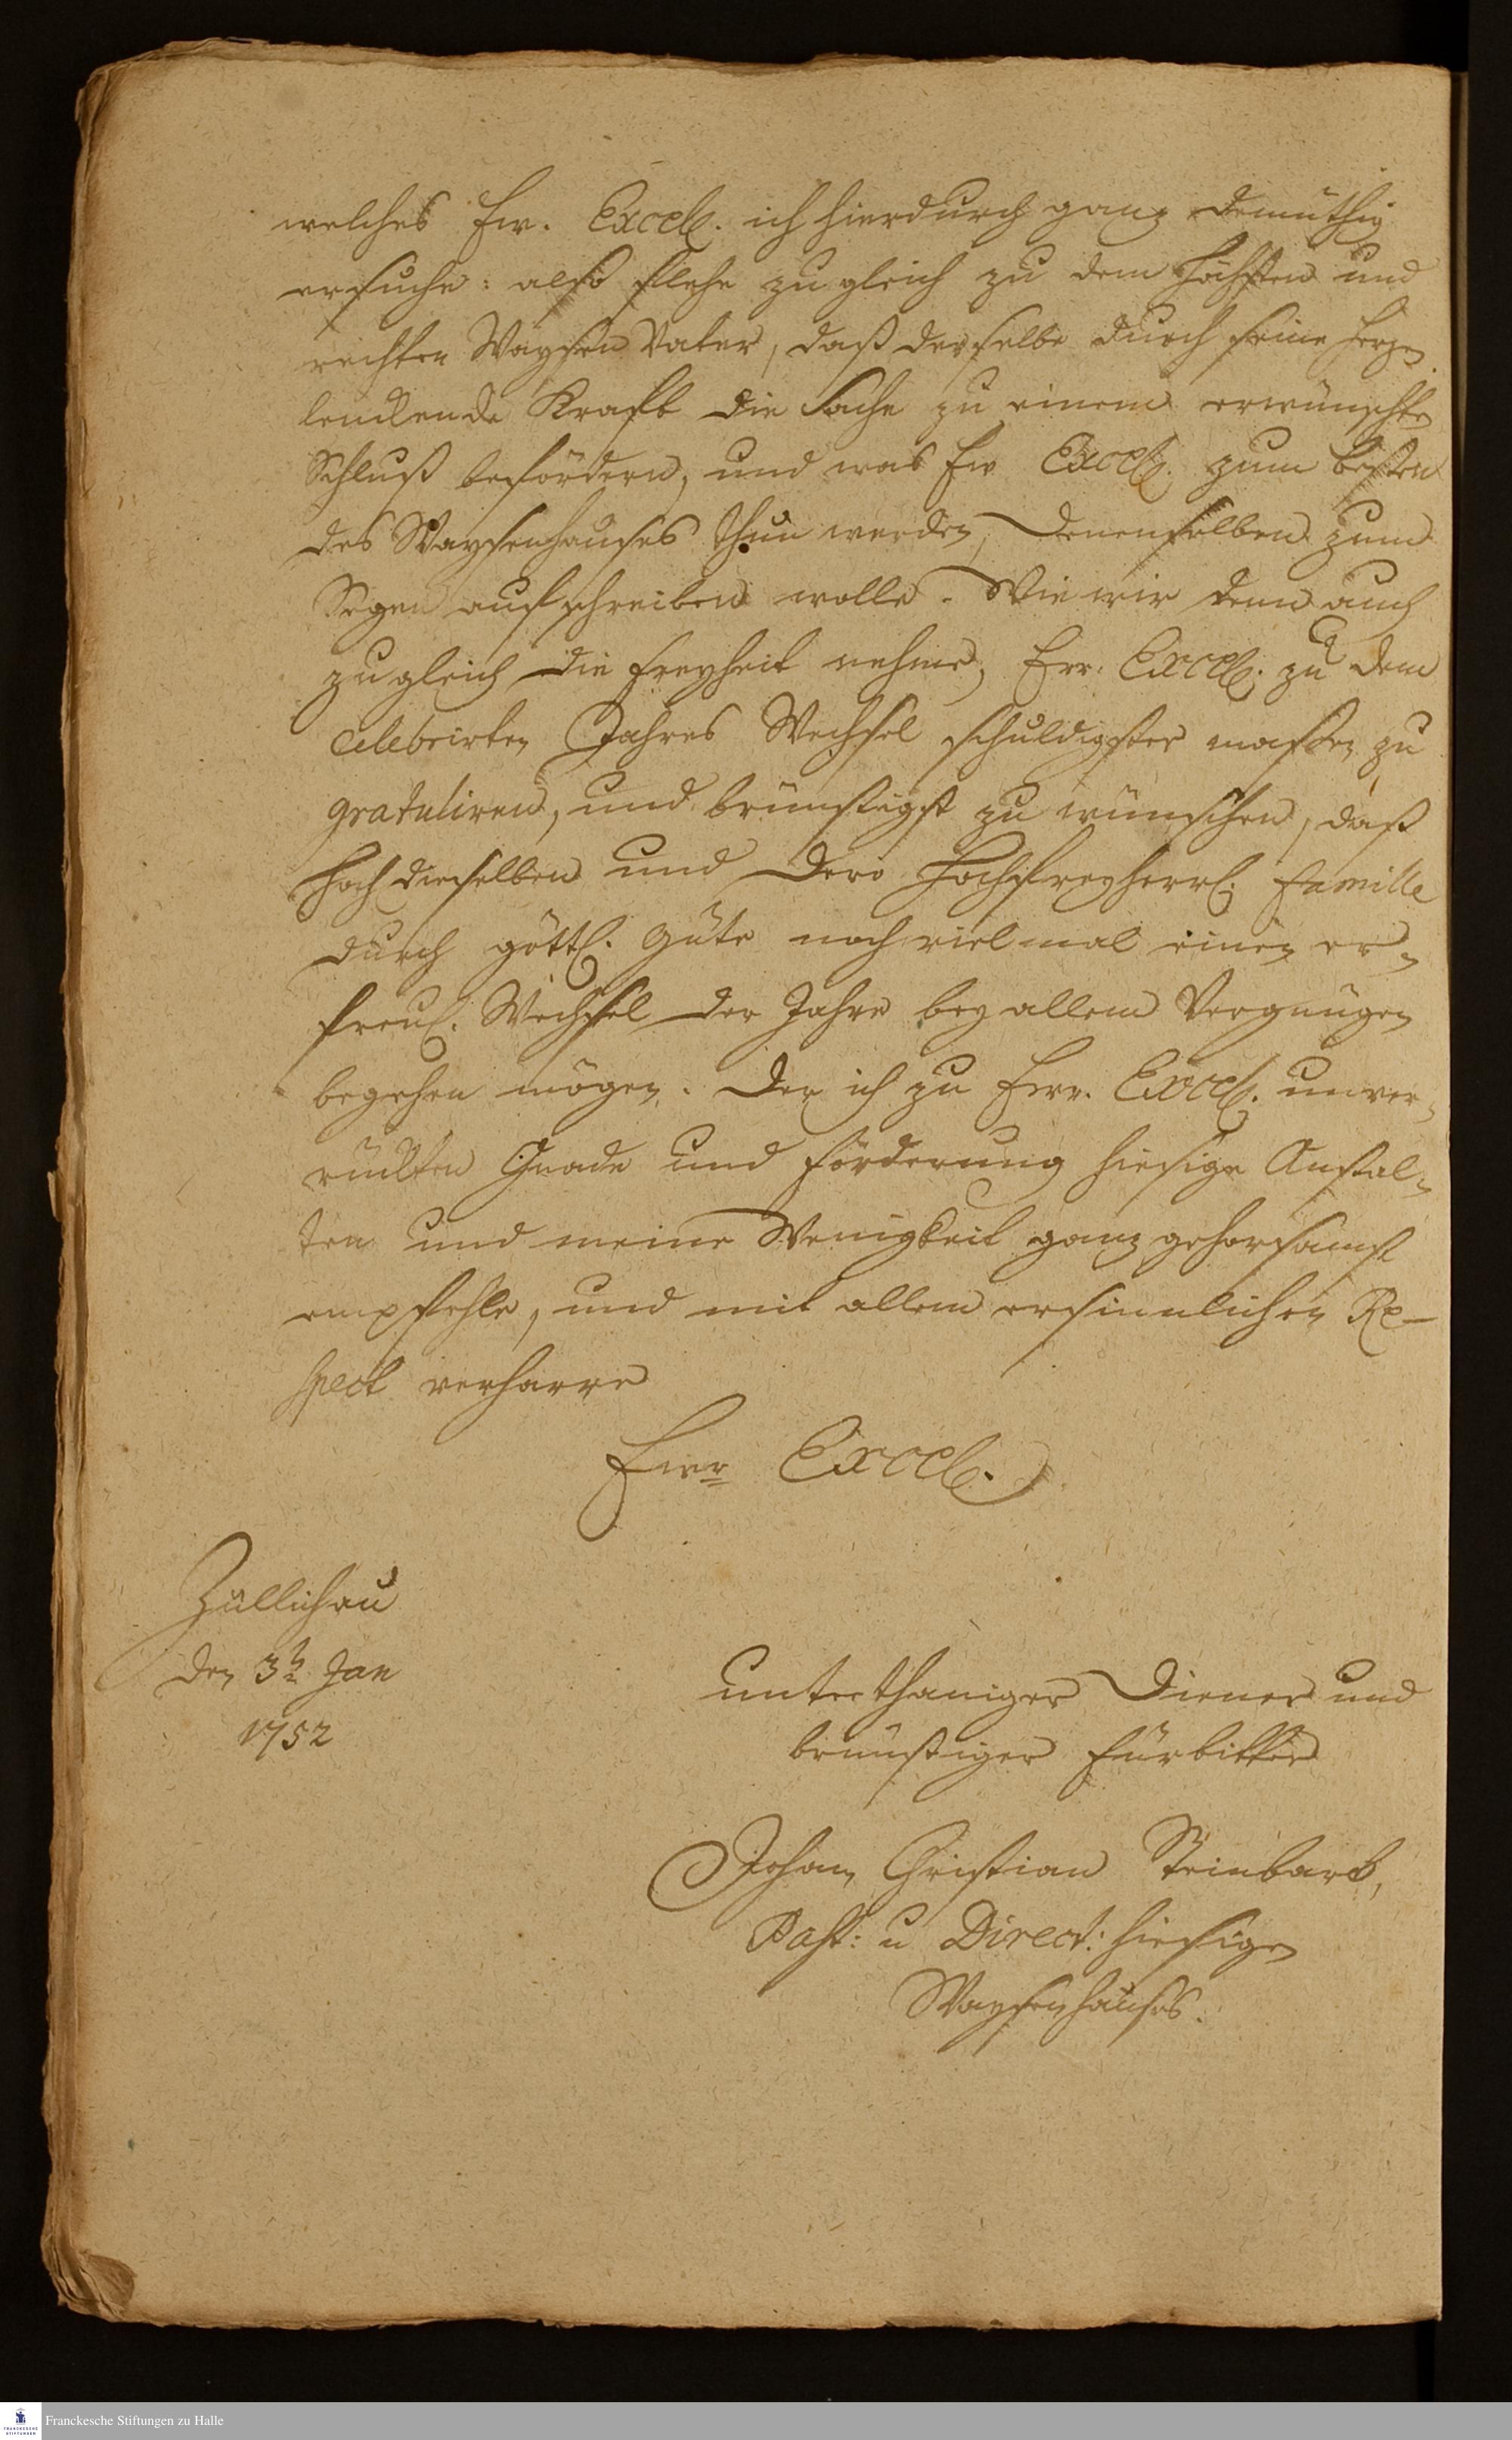 welches Ew. Excell. ich hierdurch ganz demüthig
ersuche: also flehe zugleich zu dem Höchsten und
rechten Waysen Vater, daß derselbe durch seine Herzen
lenckende Krafft die Sache zu einem erwünschten
Schluß befördern, und was Ew Excell. zum besten
des Waysenhauses thun werden, Denenselben zum
Segen aufschreiben wolle. Wie wir denn auch
zugleich die Freyheit nehmen, Ewr. Excell. zu dem
celebrirten Jahres Wechsel schuldigster maßen zu
gratuliren, und brünstigst zu wünschen, daß
Hochdieselben und Dero Hochfreyherrl. Famille
durch göttl. Güte noch vielmal einen er-
freul. Wechsel der Jahre bey allem Vergnügen
begehen mögen. Der ich zu Ewr. Excell. unver-
rückten Gnade und Förderung hiesige Anstal-
ten und meine Wenigkeit ganz gehorsamst
empfehle, und mit allem ersinnlichen Re-
spect verharre
Ewr Excell.
Züllichau
den 3t. Jan
1752
unterthaniger Diener und
brünstiger Fürbitter
Johann Christian Steinbart,
Past: u Direct: hiesigen
Waysenhauses.
Franckesche Stiftungen zu Halle